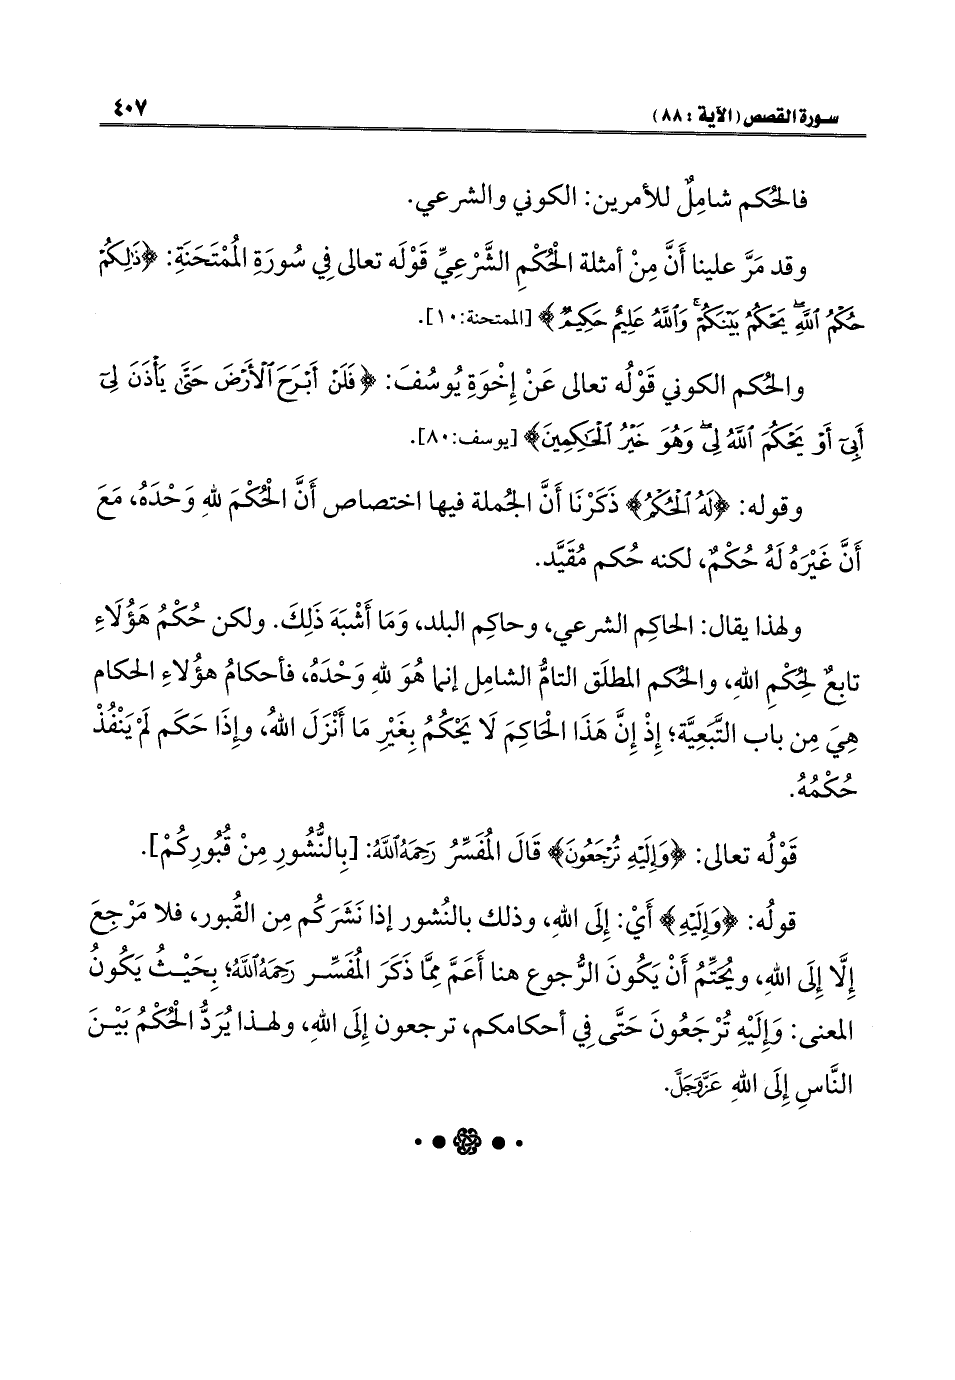 سورة القصص (الآية : ٨٨) ٤٠٧
فالحُكم شامِلٌ للأمرين: الكوني والشرعي.
وقد مَرَّ علينا أَنَّ مِنْ أمثلة الحُكْمِ الشَّرْعِيِّ قَوْلَه تعالى فِي سُورَةِ المُمْتَحَنَةِ: ﴿ذَٰلِكُمْ
حُكْمُ ٱللَّهِ ۖ يَحْكُمُ بَيْنَكُمْ ۚ وَٱللَّهُ عَلِيمٌ حَكِيمٌ﴾ [الممتحنة:١٠].
والحُكم الكوني قَوْلُه تعالى عَنْ إِخْوَةِ يُوسُفَ: ﴿فَلَنْ أَبْرَحَ ٱلْأَرْضَ حَتَّىٰ يَأْذَنَ لِىٓ
أَبِىٓ أَوْ يَحْكُمَ ٱللَّهُ لِى ۖ وَهُوَ خَيْرُ ٱلْحَٰكِمِينَ﴾ [يوسف:٨٠].
وقوله: ﴿لَهُ ٱلْحُكْمُ﴾ ذَكَرْنَا أَنَّ الجُملة فيها اختصاص أَنَّ الْحُكْمَ للهِ وَحْدَهُ، مَعَ
أَنَّ غَيْرَهُ لَهُ حُكْمٌ، لكنه حُكم مُقَيَّد.
ولهذا يقال: الحاكِم الشرعي، وحاكِم البلد، وَمَا أَشْبَهَ ذَلِكَ. ولكن حُكْمُ هَؤُلَاءِ
تابعٌ لِحُكْمِ اللهِ، والحُكم المطلَق التامُّ الشامِل إنما هُوَ للهِ وَحْدَهُ، فأحكامُ هؤُلاءِ الحكام
هِيَ مِن باب التَّبَعِيَّة؛ إِذْ إِنَّ هَذَا الحَاكِمَ لَا يَحْكُمُ بِغَيْرِ مَا أَنْزَلَ اللهُ، وإِذَا حَكَم لَمْ يَنْفُذْ
حُكْمُهُ.
قَوْلُه تعالى: ﴿وَإِلَيْهِ تُرْجَعُونَ﴾ قَالَ المُفَسِّرُ رَحِمَهُ اللَّهُ: [بِالنُّشُورِ مِنْ قُبُورِكُمْ].
قولُه: ﴿وَإِلَيْهِ﴾ أَيْ: إِلَى اللهِ، وذلك بالنُشور إذا نَشَرَكُم مِن القُبور، فلا مَرْجِعَ
إِلَّا إِلَى اللهِ، ويُحَتِّمُ أَنْ يَكُونَ الرُّجوع هنا أَعَمَّ مِمَّا ذَكَرَ المُفَسِّر رَحِمَهُ اللَّهُ؛ بِحَيْثُ يَكُونُ
المعنى: وَإِلَيْهِ تُرْجَعُونَ حَتَّى فِي أحكامكم، ترجعون إِلَى اللهِ، ولهذا يُرَدُّ الْحُكْمُ بَيْنَ
النَّاسِ إِلَى اللهِ عَزَّوَجَلَّ.